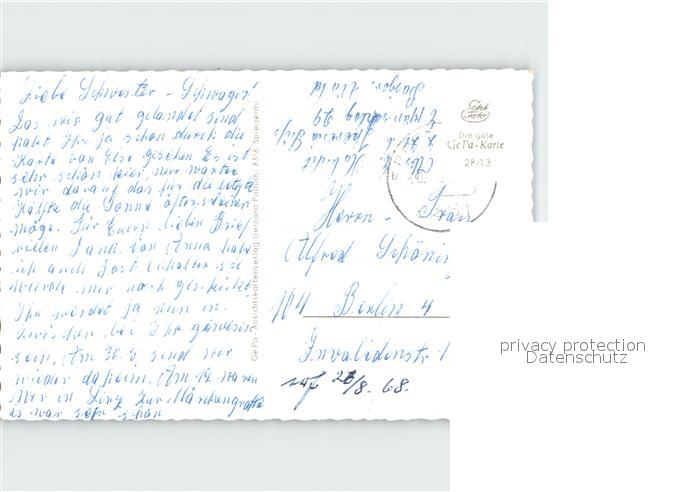 Liebe Schwester - Schwager!
Das wir gut gelandet sind
habt Ihr ja schon durch die
Karte von Else gesehen Es ist
sehr schön hier, nur warten
wir darauf das für die letzte
Hälfte die Sonne öfter scheinen
möge. Für Euern lieben Brief
vielen Dank. Von Anna habe
ich auch Post erhalten sie
wurde mir nach geschickt
Ihr werdet ja nun in
zwischen bei Ihr gewesen
sein. Am 30.8 sind wir
wieder daheim. Am 19. waren
wir in Linz zur Märchengrotte
es war sehr schön
GePa - Ansichtskartenverlag Gerhard Patsch, 8356 Spiegelau
Echt Foto
Die gute
GePa-Karte
28/13
Herrn - Frau
Alfred
104 Berlin 4
Invalidenstr 1
28/8. 68.
privacy protection
Datenschutz